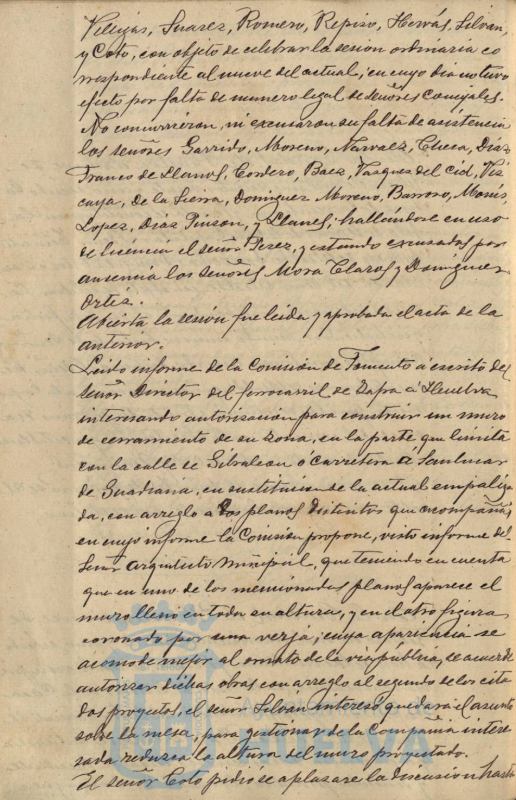 Villegas, Suarez, Romero, Repiso, Hervás, Silván,
y Coto, con objeto de celebrar la sesión ordinaria co
rrespondiente al nueve del actual, en cuyo dia no tuvo
efecto por falta de numero legal de señores Concejales.
No concurrieron, ni excusaron su falta de asistencia
los señores Garrido, Moreno, Narvaez, Checa, Diaz
Franco de Llanos, Cordero, Baez, Vazquez del Cid, Viz
caya, de la Sierra, Dominguez Moreno, Barroso,
Lopez, Diaz Pinzon, y Llanes; hallándose en uso
de licencia el señor Perez, y estando excusados por
ausencia los señores Mora Claros y Dominguez
Ortiz.
Abierta la sesión fue leida y aprobada el acta de la
anterior.
Leido informe de la Comisión de Fomento á escrito del
señor Director del ferrocarril de Zafra á Huelva
interesando autorización para construir un muro
de cerramiento de su zona, en la parte que limita
con la calle de Gibraleon ó Carretera á Sanlucar
de Guadiana, en sustitucion de la actual empaliza
da, con arreglo a dos planos distintos que acompaña;
en cuyo informe la Comision propone, visto informe del
Señor arquitecto municipal, que teniendo en cuenta
que en uno de los mencionados planos aparece el
muro lleno en toda su altura, y en el otro figura
coronado por una verja, cuya apariencia se
acomoda mejor al ornato de la via pública, se acuerde
autorizar dichas obras con arreglo al segundo de los cita
dos proyectos, el señor Silván interesó quedara el asunto
sobre la mesa, para gestionar de la Compañia intere
sada reduzca la altura del muro proyectado.
El señor Coto pidió se aplazase la discusion hasta